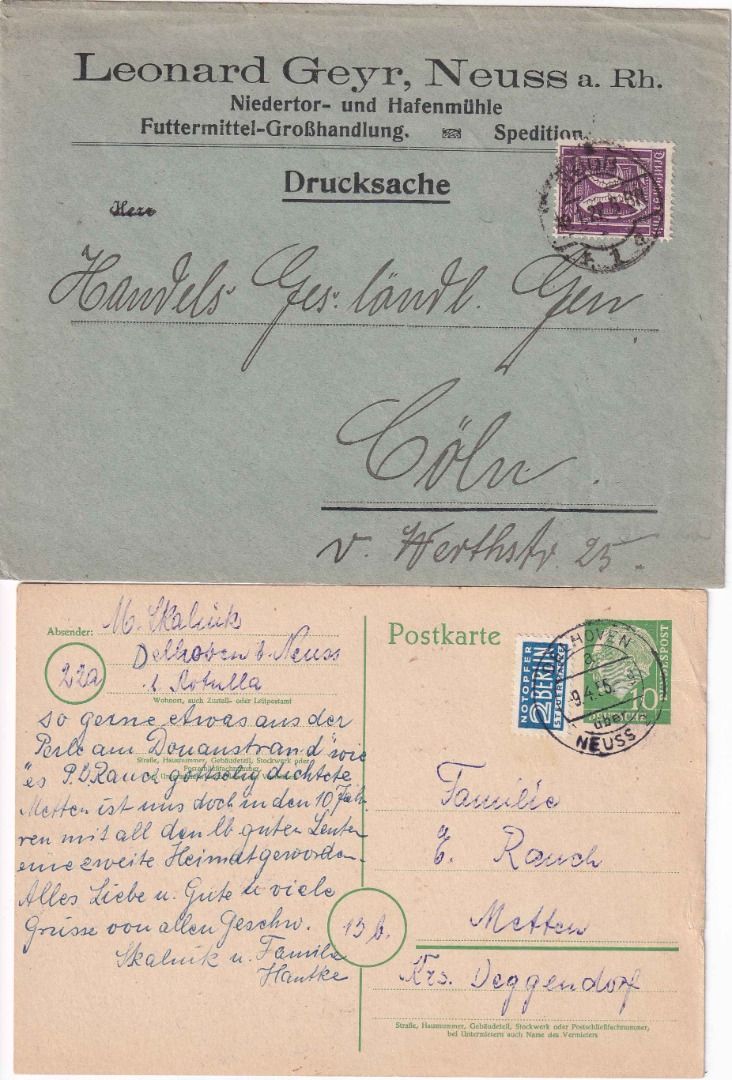 Leonard Geyr, Neuss a. Rh.
Niedertor- und Hafenmühle
Futtermittel-Großhandlung. Spedition.
Drucksache
Herr
Handels. Ges. ländl. Gen
Cöln.
v. Werthstr. 25.
Absender: M. Skalnik
22a
Delhoven b. Neuss
b. Rotulla
Wohnort, auch Zustell- oder Leitpostamt
so gerne etwas aus der
Perle am Donaustrand" wie
Straße, Hausnummer, Gebäudeteil, Stockwerk oder
"es P. B. Rauch gottselig dichtete
Metten ist uns doch in den 10 Jah-
ren mit all den lb guten Leuten
eine zweite Heimat geworden.
Alles Liebe u. Gute u viele
Grüsse von allen Geschw.
Skalnik u. Familie
Hantke
Postkarte
NOTOPFER
2 BERLIN
STEUERMARKE
HOVEN
a
9.4.55
über
NEUSS
10
BUNDESPOST
Familie
E. Rauch
Metten
13b.
Krs. Deggendorf
Straße, Hausnummer, Gebäudeteil, Stockwerk oder Postschließfachnummer,
bei Untermietern auch Name des Vermieters